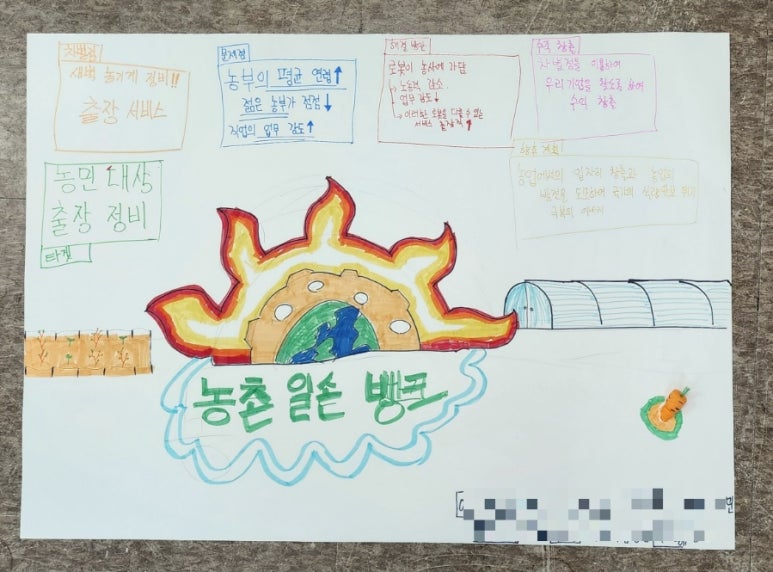 차별점
새벽 늦기게 정비!!
출장 서비스
문제점
농부의 평균 연령↑
젊은 농부가 점점↓
직업의 업무 강도↑
해결 방안
로봇이 농사에 가담
→ 노동력 감소
업무 강도↓
→ 이러한 로봇을 다룰 수 있는
서비스 출장직↑
수익 창출
차별점을 이용하여
우리 기업을 찾도록 하여
수익 창출
향후 계획
농업에서의 일자리 창출과 농업의
발전을 도모하여 국가의 식량안보 위기
극복의 이바지
농민 대상
출장 정비
타겟
농촌 일손 뱅크